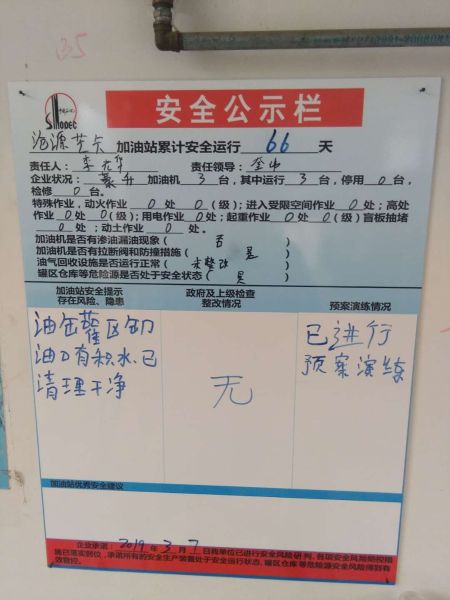 35
SINODEC
安全公示栏
加油站累计安全运行 66 天
责任人： 李 华 责任领导：
企业状况： 加油机 3 台，其中运行 3 台，停用 0 台，
检修 0 台。
特殊作业，动火作业 0 处 0（级）；进入受限空间作业 0 处；高处
作业 0 处 0（级）；用电作业 0 处；起重作业 0 处 0（级）盲板抽堵
0 处；动土作业 0 处。
加油机是否有渗油漏油现象（ 否 ）
加油机是否有拉断阀和防撞措施（ 是 ）
油气回收设施是否运行正常（ 未整改 ）
罐区仓库等危险源是否处于安全状态（ 是 ）
加油站安全提示
存在风险、隐患
政府及上级检查
整改情况
预案演练情况
油罐区卸
油口有积水.已
清理干净
无
已进行
预案演练
加油站优秀安全建议
企业承诺：2019 年 3 月 7 日我单位已进行安全风险研判，各项安全风险防控措
施已落实到位，承诺所有的安全生产装置处于安全运行状态，罐区仓库等危险源安全风险得到有
效管控。